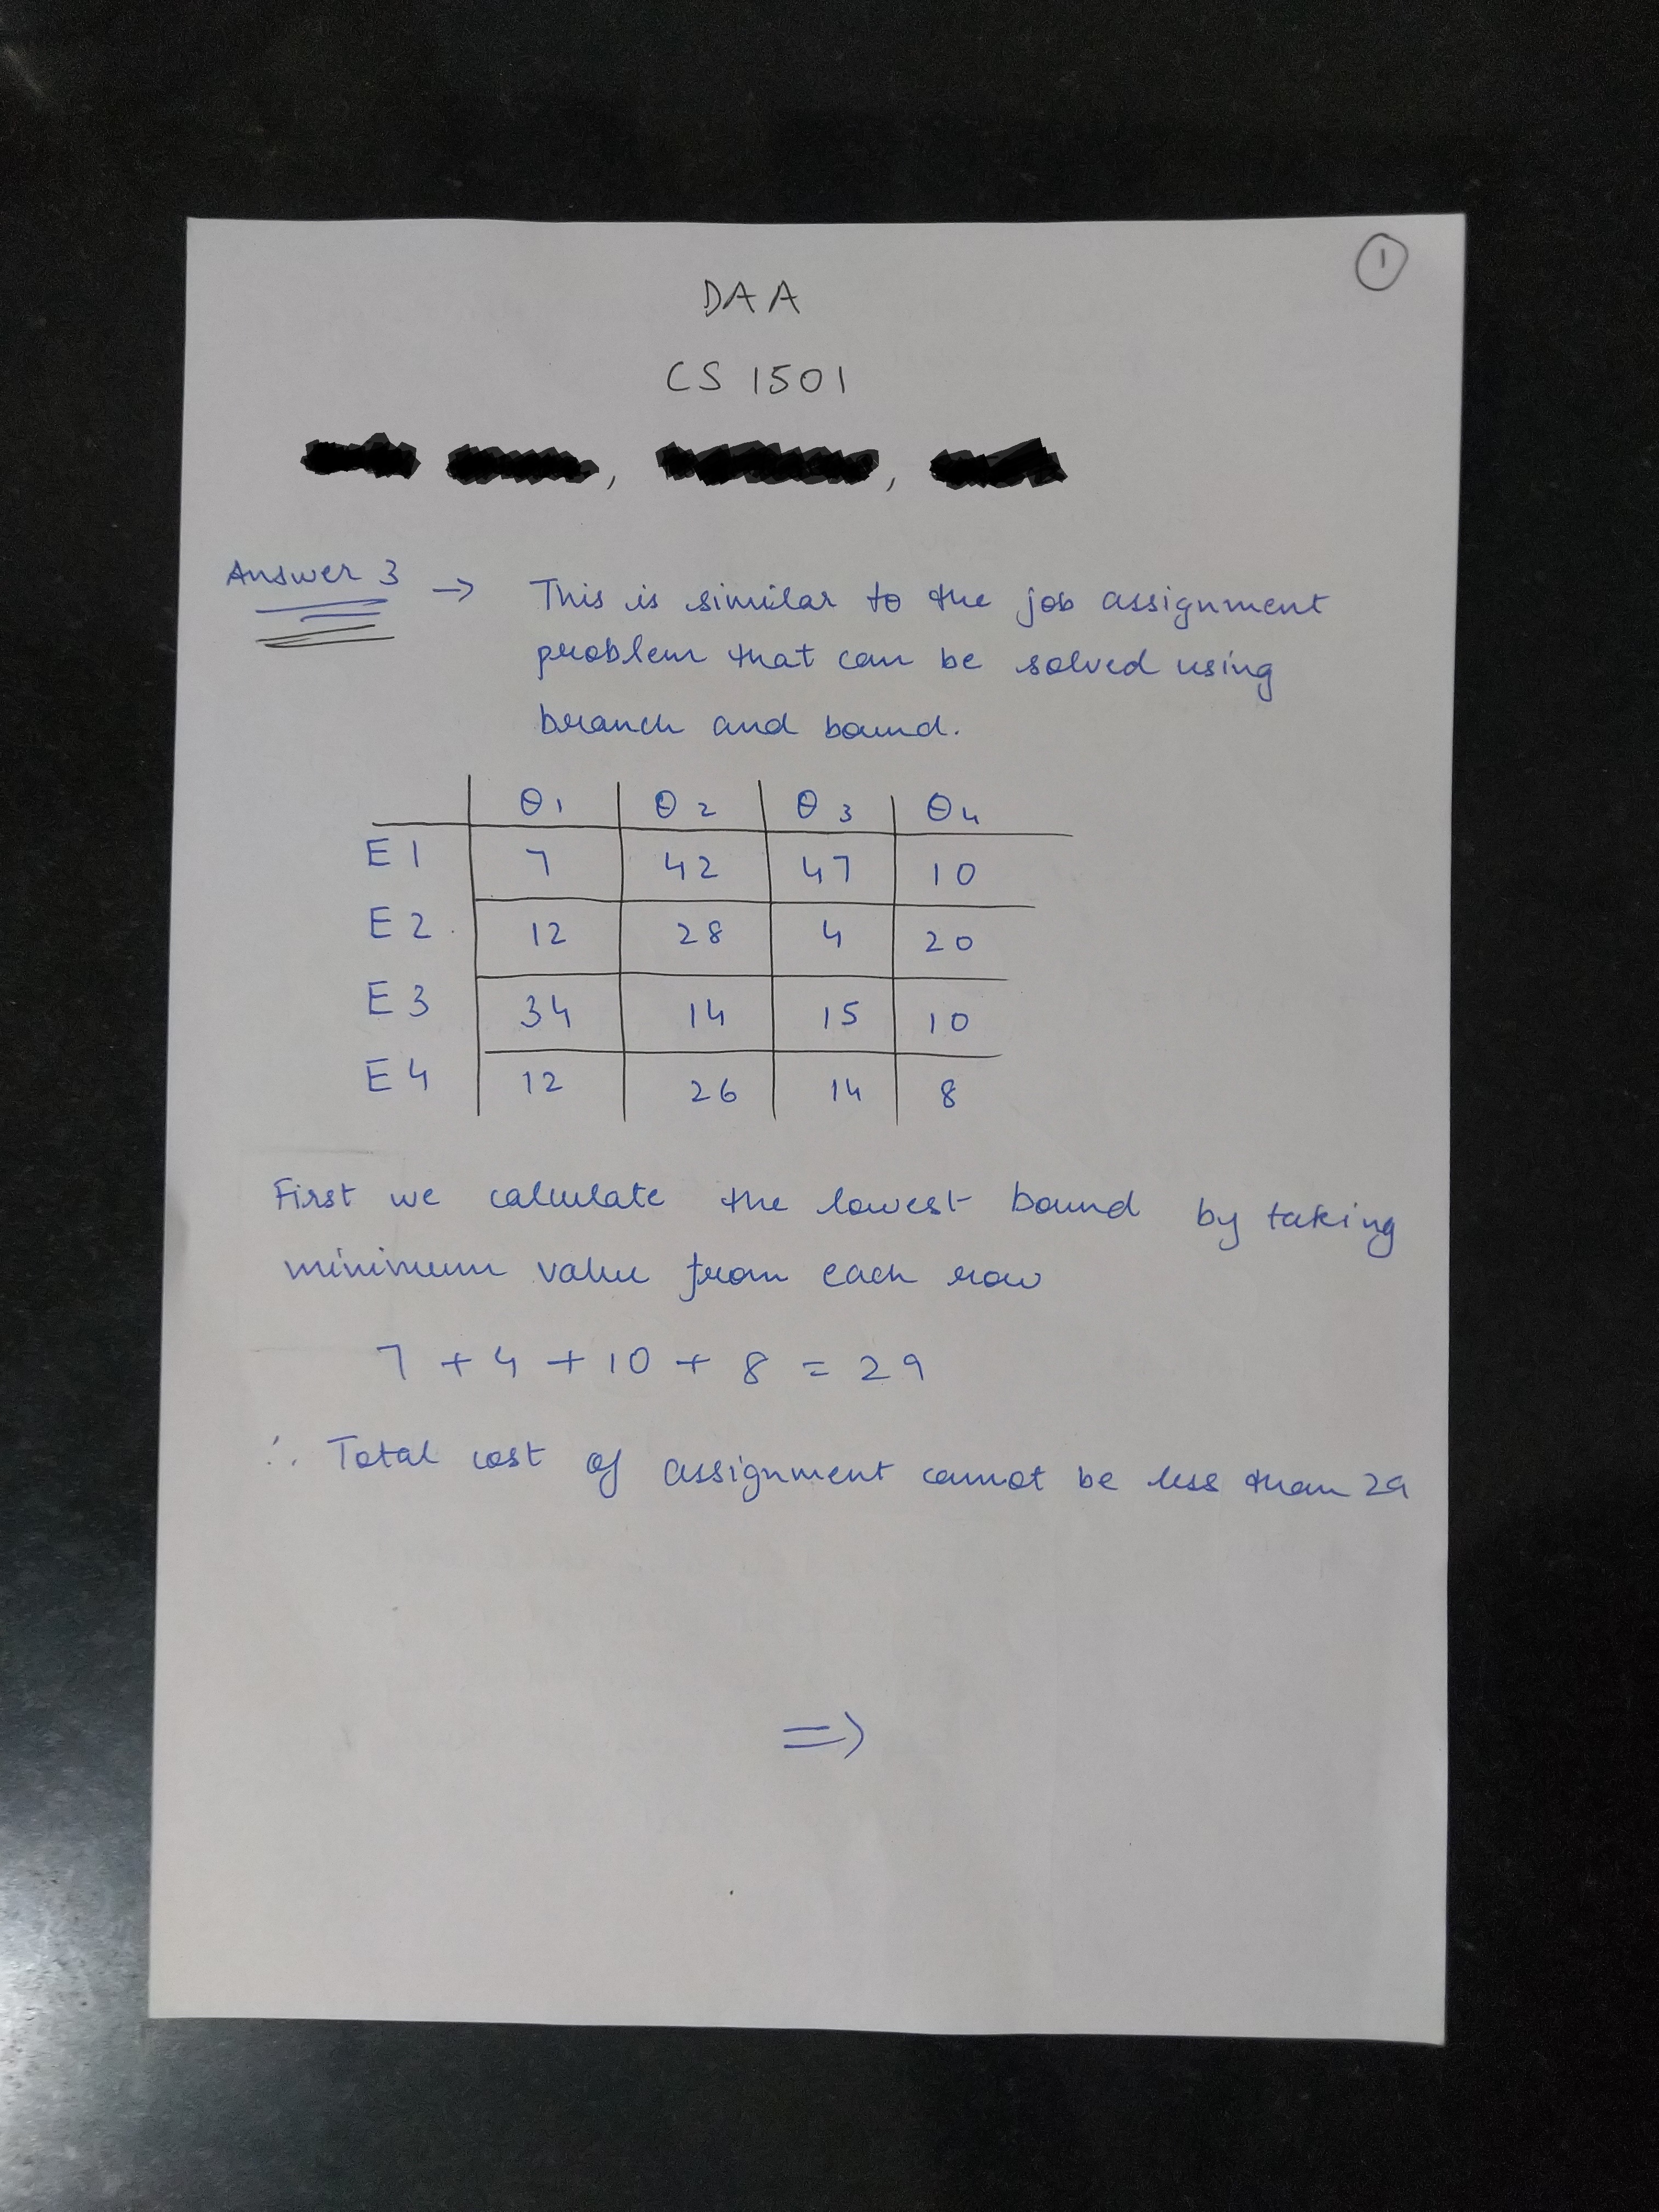 1
DAA
CS 1501
, ,
Answer 3 → This is similar to the job assignment
problem that can be solved using
branch and bound.
θ1 θ2 θ3 θ4
E1 7 42 47 10
E2 12 28 4 20
E3 34 14 15 10
E4 12 26 14 8
First we calculate the lowest bound by taking
minimum value from each row
7 + 4 + 10 + 8 = 29
∴ Total cost of assignment cannot be less than 29
=>